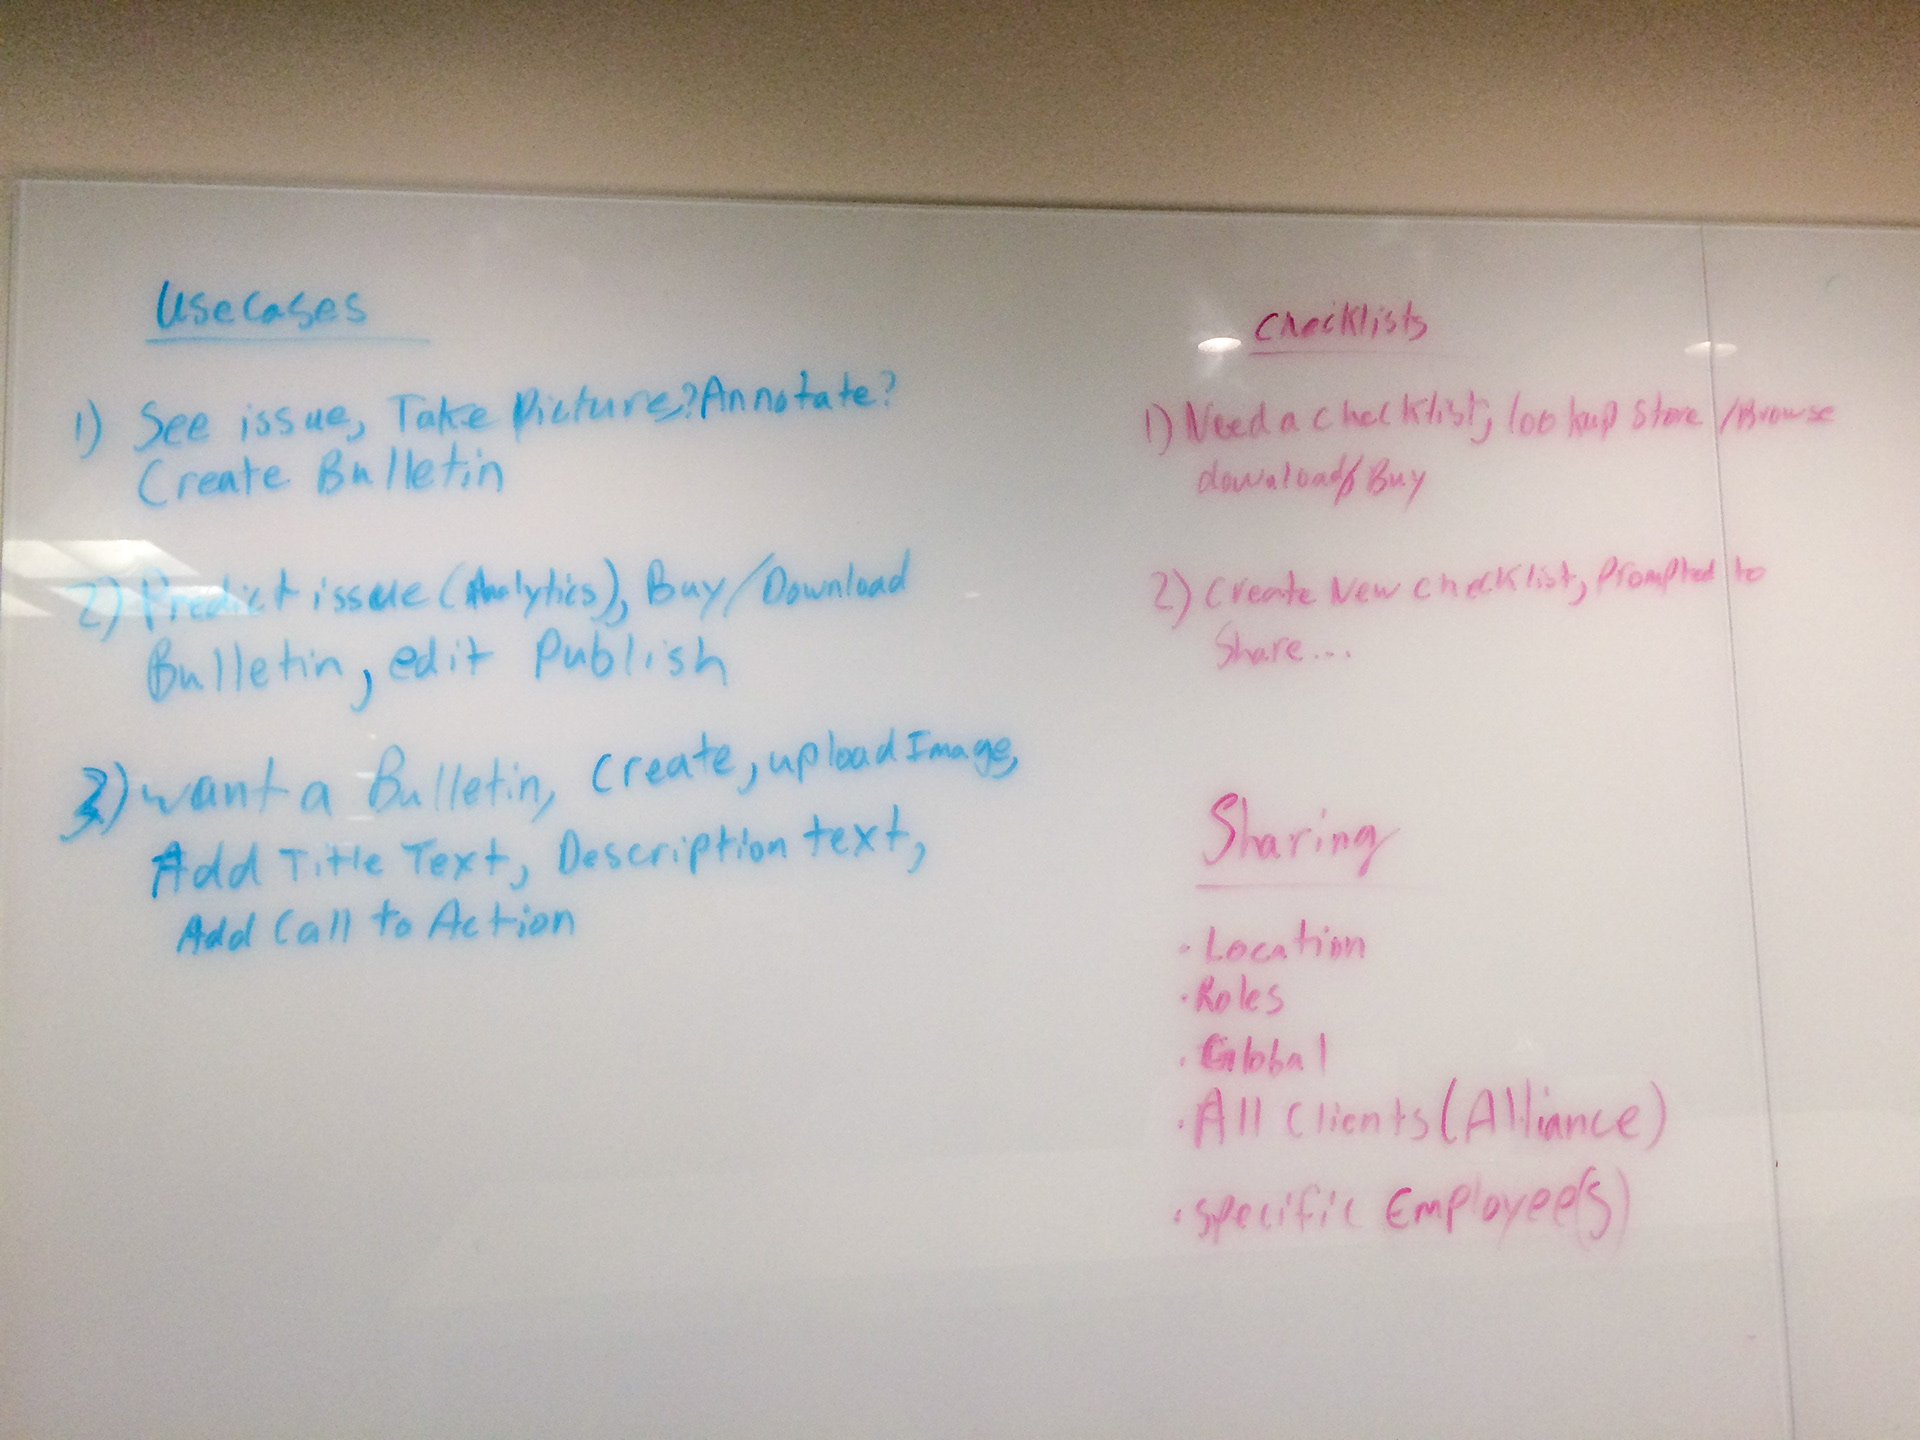 UseCases
1) See issue, Take Picture? Annotate?
Create Bulletin
2) Predict issue (Analytics), Buy/Download
Bulletin, edit Publish
3) want a Bulletin, Create, upload Image,
Add Title Text, Description text,
Add Call to Action
Checklists
1) Need a checklist, lookup Store/Browse
download/Buy
2) Create New checklist, Prompted to
Share...
Sharing
· Location
· Roles
· Global
· All Clients (Alliance)
· Specific Employee(s)